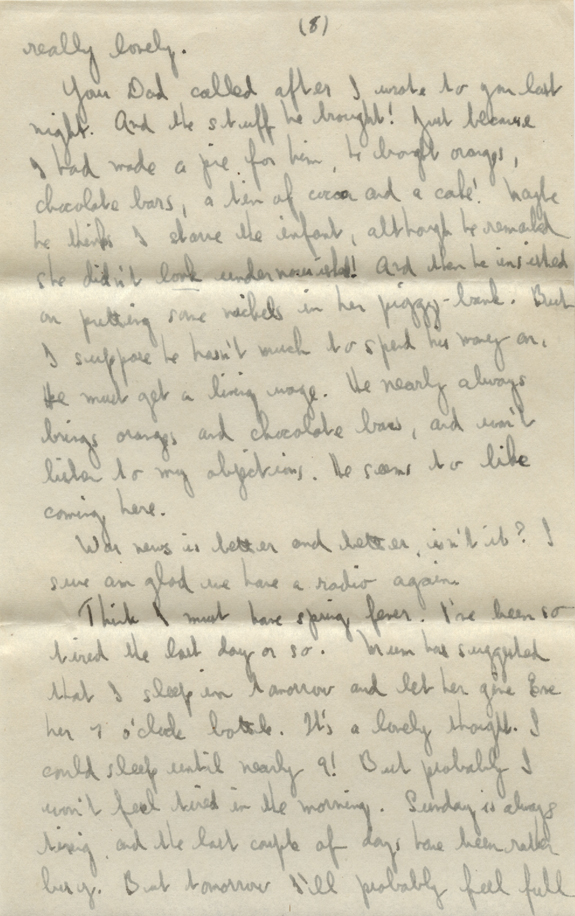 (8)
really lovely.
Your Dad called after I wrote to you last
night. And the stuff he brought! Just because
I had made a pie for him, he brought oranges,
chocolate bars, a tin of cocoa and a cake! Maybe
he thinks I starve the infant, although he remarked
she didn't look undernourished! And then he insisted
on putting some nickels in her piggy-bank. But
I suppose he hasn't much to spend his money on.
He must get a living wage. He nearly always
brings oranges and chocolate bars, and won't
listen to my objections. He seems to like
coming here.
War news is better and better, isn't it? I
sure am glad we have a radio again.
Think I must have spring fever. I've been so
tired the last day or so. Mum has suggested
that I sleep in tomorrow and let her give Eve
her 7 o'clock bottle. It's a lovely thought. I
could sleep until nearly 9! But probably I
won't feel tired in the morning. Sunday is always
tiring, and the last couple of days have been rather
busy. But tomorrow I'll probably feel full